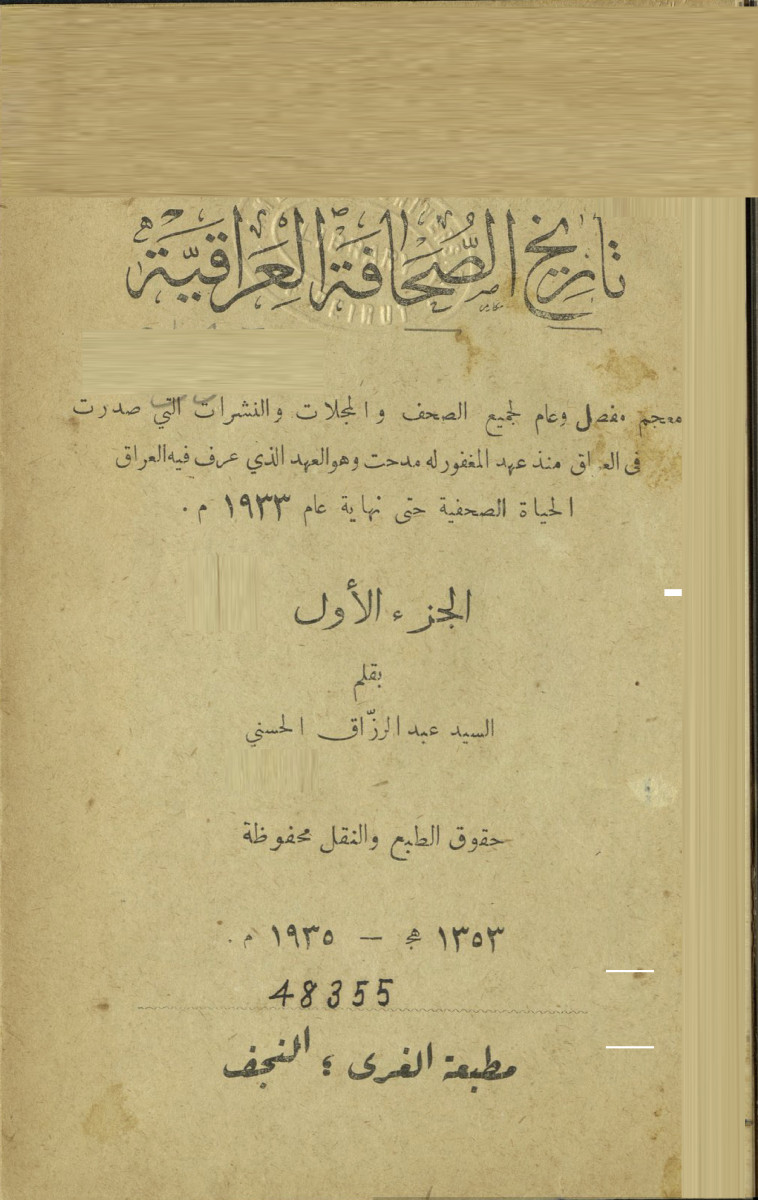 تاريخ الصَّحَافَة العِرَاقيَّة
معجم مفصل وعام لجميع الصحف والمجلات والنشرات التي صدرت
في العراق منذ عهد المغفور له مدحت وهو العهد الذي عرف فيه العراق
الحياة الصحفية حتى نهاية عام ١٩٣٣ م .
الجزء الأول
بقلم
السيد عبد الرزّاق الحسني
حقوق الطبع والنقل محفوظة
١٣٥٣ هج — ١٩٣٥ م .
48355
مطبعة الغرى ؛ النجف